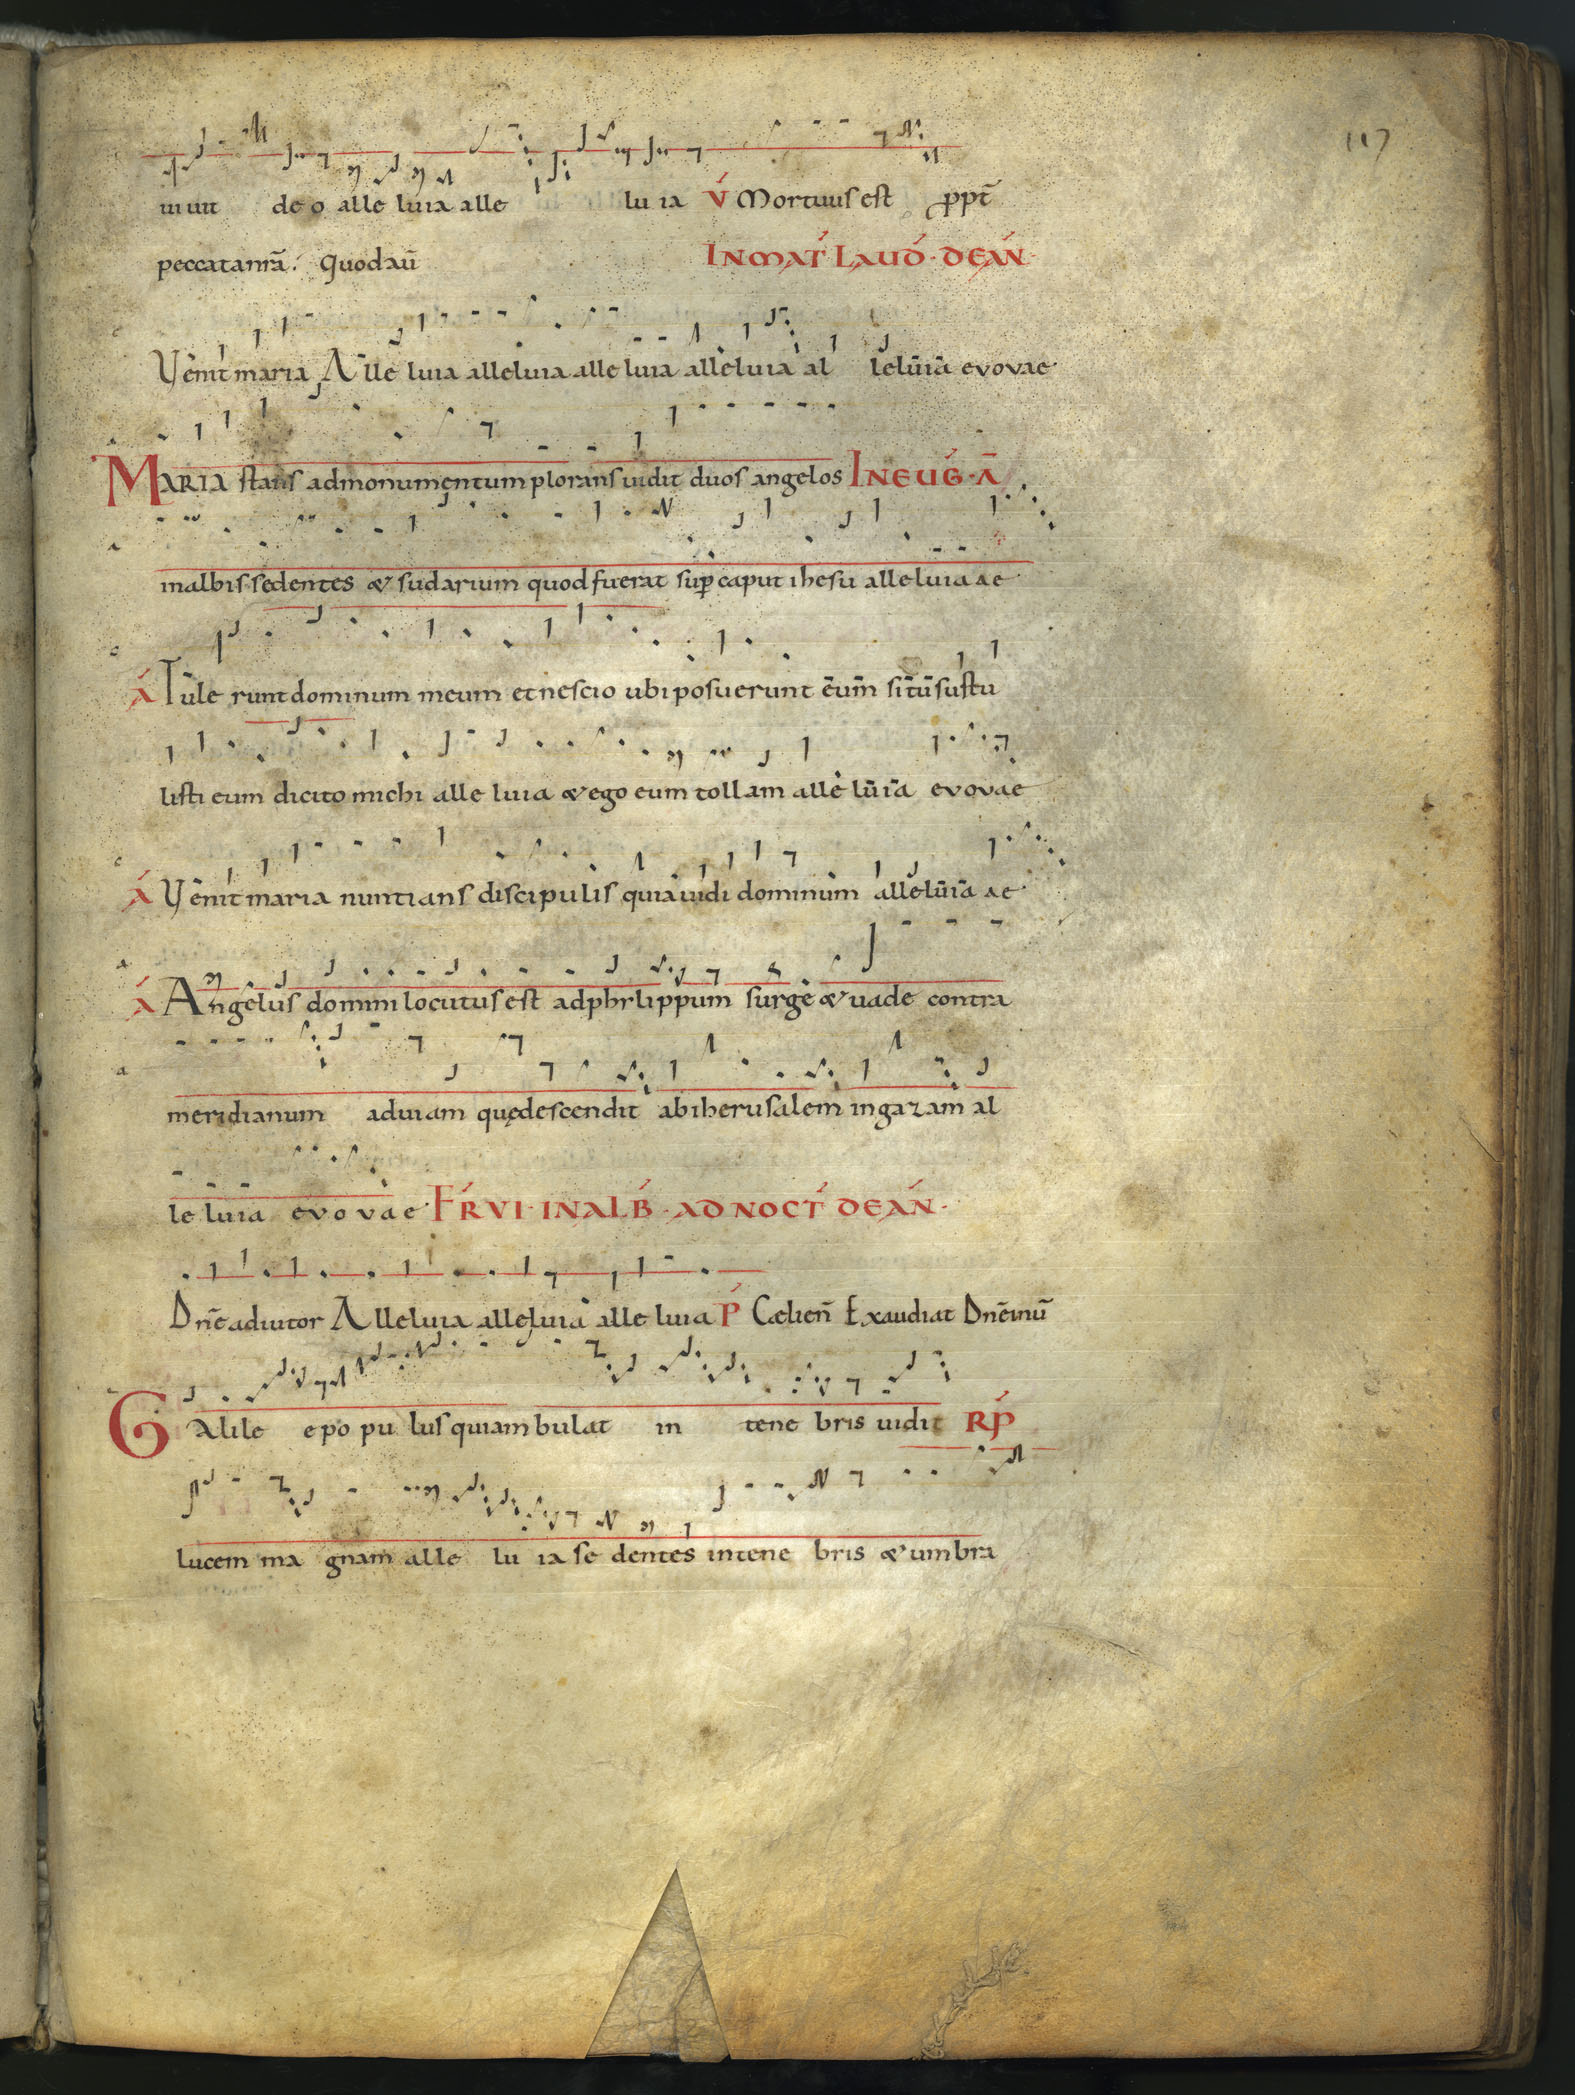 117
uiuit de o alle luia alle lu ia V Mortuus est ppt̄
peccata nr̄a. Quod aū IN MAT LAUD DE AN
Venit maria Alle luia alleluia alle luia alleluia al leluia evovae
MARIA stans ad monumentum plorans uidit duos angelos IN EUG A
in albis sedentes & sudarium quod fuerat sup caput ihesu alleluia ae
A Tule runt dominum meum et nescio ubi posuerunt eum si tu sustu
listi eum dicito michi alle luia & ego eum tollam alle luia evovae
A Venit maria nuntians discipulis quia uidi dominum alleluia ae
A Angelus domini locutus est ad phylippum surge & uade contra
meridianum ad uiam quę descendit ab iherusalem in gazam al
le luia evovae FR VI IN ALB AD NOCT DE AN
Dn̄e adiutor Alleluia alleluia alle luia P Cęli en̄ Exaudiat Dn̄e inū
GAlile e po pu lus qui ambulat in tene bris uidit RP
lucem ma gnam alle lu ia se dentes in tene bris & umbra